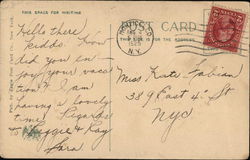 THIS SPACE FOR WRITING
POST CARD
THIS SIDE IS FOR THE ADDRESS
N.Y.
Hello there
Kiddo. How
did you en-
joy your vaca
tion? I am
having a lovely
time. Regards
to Maggie & Kay
Sara
Miss Kate Fabian
389 East 4th St
NYC